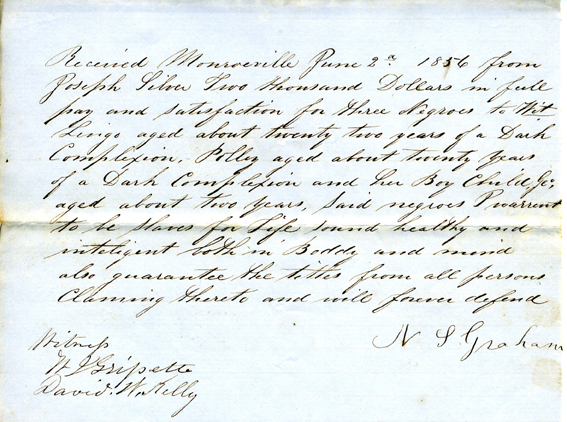 Received Monroeville June 2nd 1856 from
Joseph Silver Two thousand Dollars in full
pay and satisfaction for three Negroes to Wit
Lingo aged about twenty two years of a Dark
Complexion, Polley aged about twenty Years
of a Dark Complexion and her Boy Child
aged about two years, said negroes I warrent
to be slaves for Life sound healthy and
inteligent both in Boddy and mind
also guarantee the titles from all persons
Claiming thereto and will forever defend
N S Graham
Witness
David W Kelly